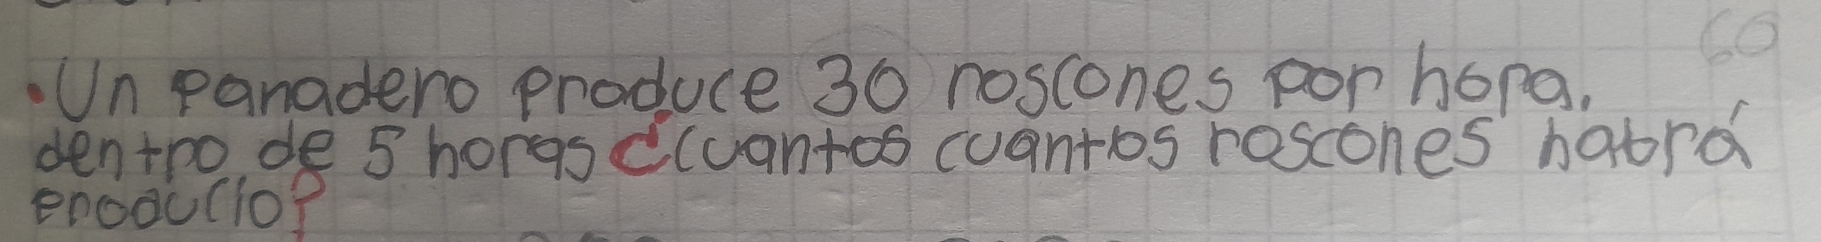 60
• Un panadero produce 30 roscones por hora.
dentro de 5 horas ¿cuantos cuantos roscones habrá
producio?